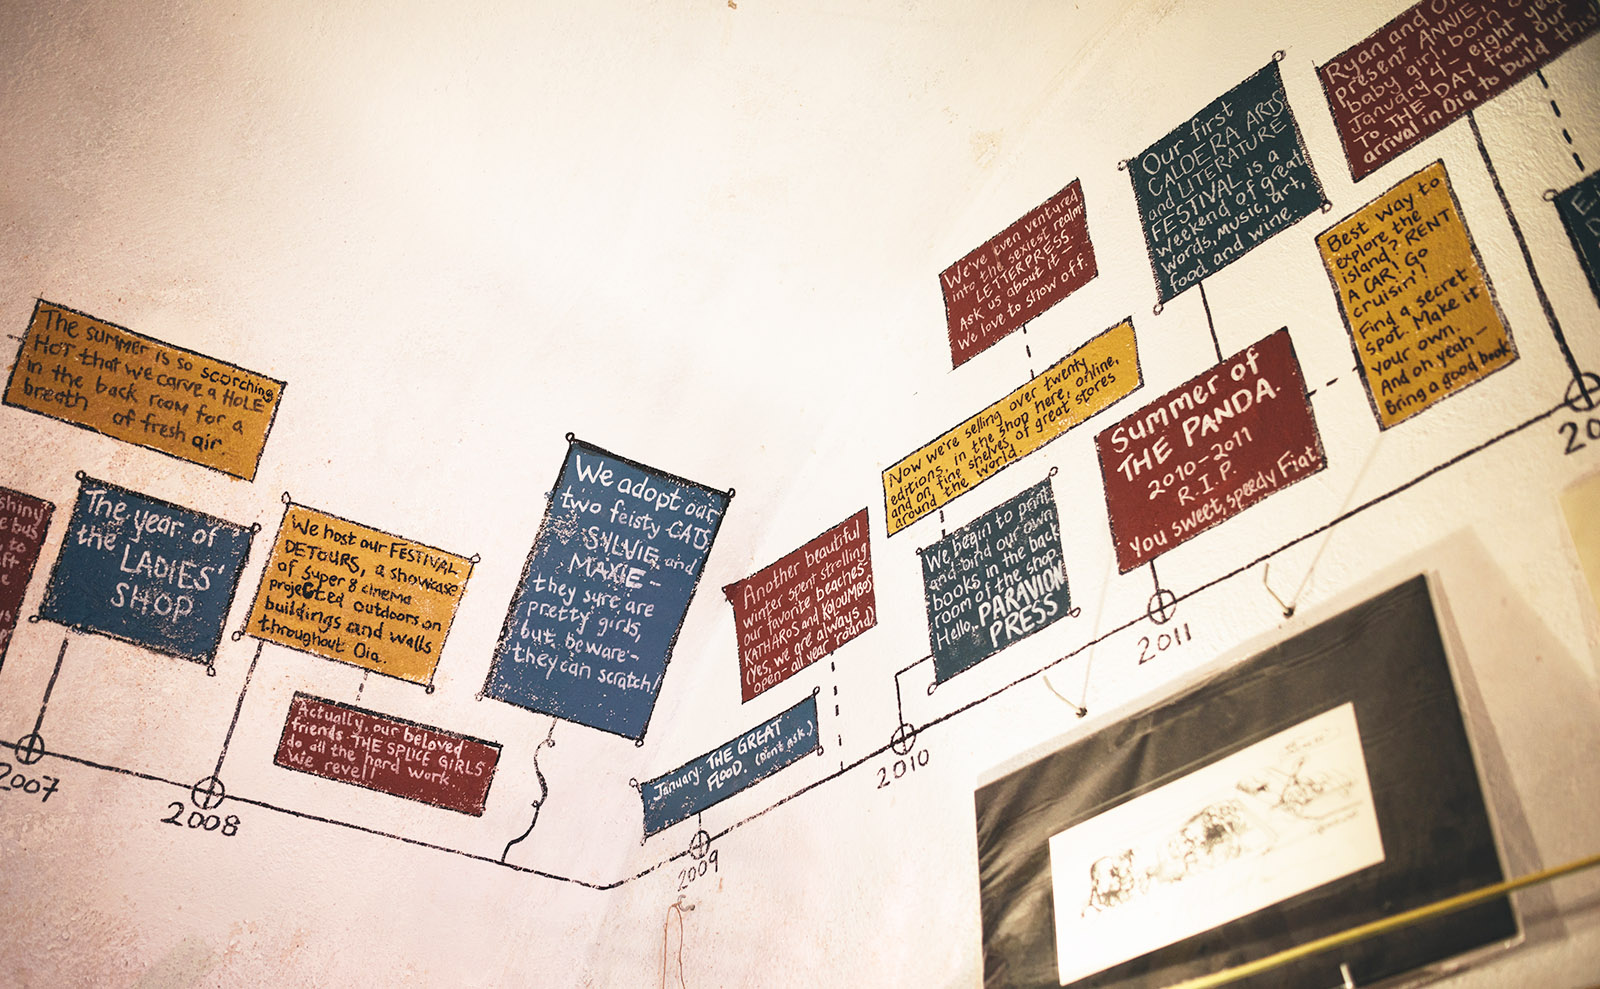 The summer is so scorching
HOT that we carve a HOLE
in the back room for a
breath of fresh air.
shiny
e bus
to
ft
e
The year of
the LADIES'
SHOP
2007
We host our FESTIVAL
DETOURS, a showcase
of super 8 cinema
projected outdoors on
buildings and walls
throughout Oia.
Actually, our beloved
friends THE SPLICE GIRLS
do all the hard work.
We revel!
2008
We adopt our
two feisty CATS,
SYLVIE and
MAXIE -
they sure are
pretty girls,
but beware -
they can scratch!
January: THE GREAT
FLOOD. (Don't ask.)
2009
Another beautiful
winter spent strolling
our favorite beaches-
KATHAROS and KOLOUMBOS
(Yes, we are always
open - all year 'round)
We've even ventured
into the sexiest realm:
LETTERPRESS.
Ask us about it -
We love to show off.
Now we're selling over twenty
editions, in the shop here, online,
and on fine shelves of great stores
around the world.
We begin to print
and bind our own
books in the back
room of the shop.
Hello, PARAVION
PRESS
2010
Our first
CALDERA ARTS
and LITERATURE
FESTIVAL is a
weekend of great
words, music, art,
food and wine
Summer of
THE PANDA.
2010-2011
R.I.P.
You sweet, speedy Fiat.
2011
Ryan and
present ANNIE,
baby girl, born
January 4 - eight
TO THE DAY from our
arrival in Oia to build this
Best way to
explore the
island? RENT
A CAR! Go
cruisin'!
Find a secret
spot. Make it
your own.
And oh yeah -
Bring a good book
E
20